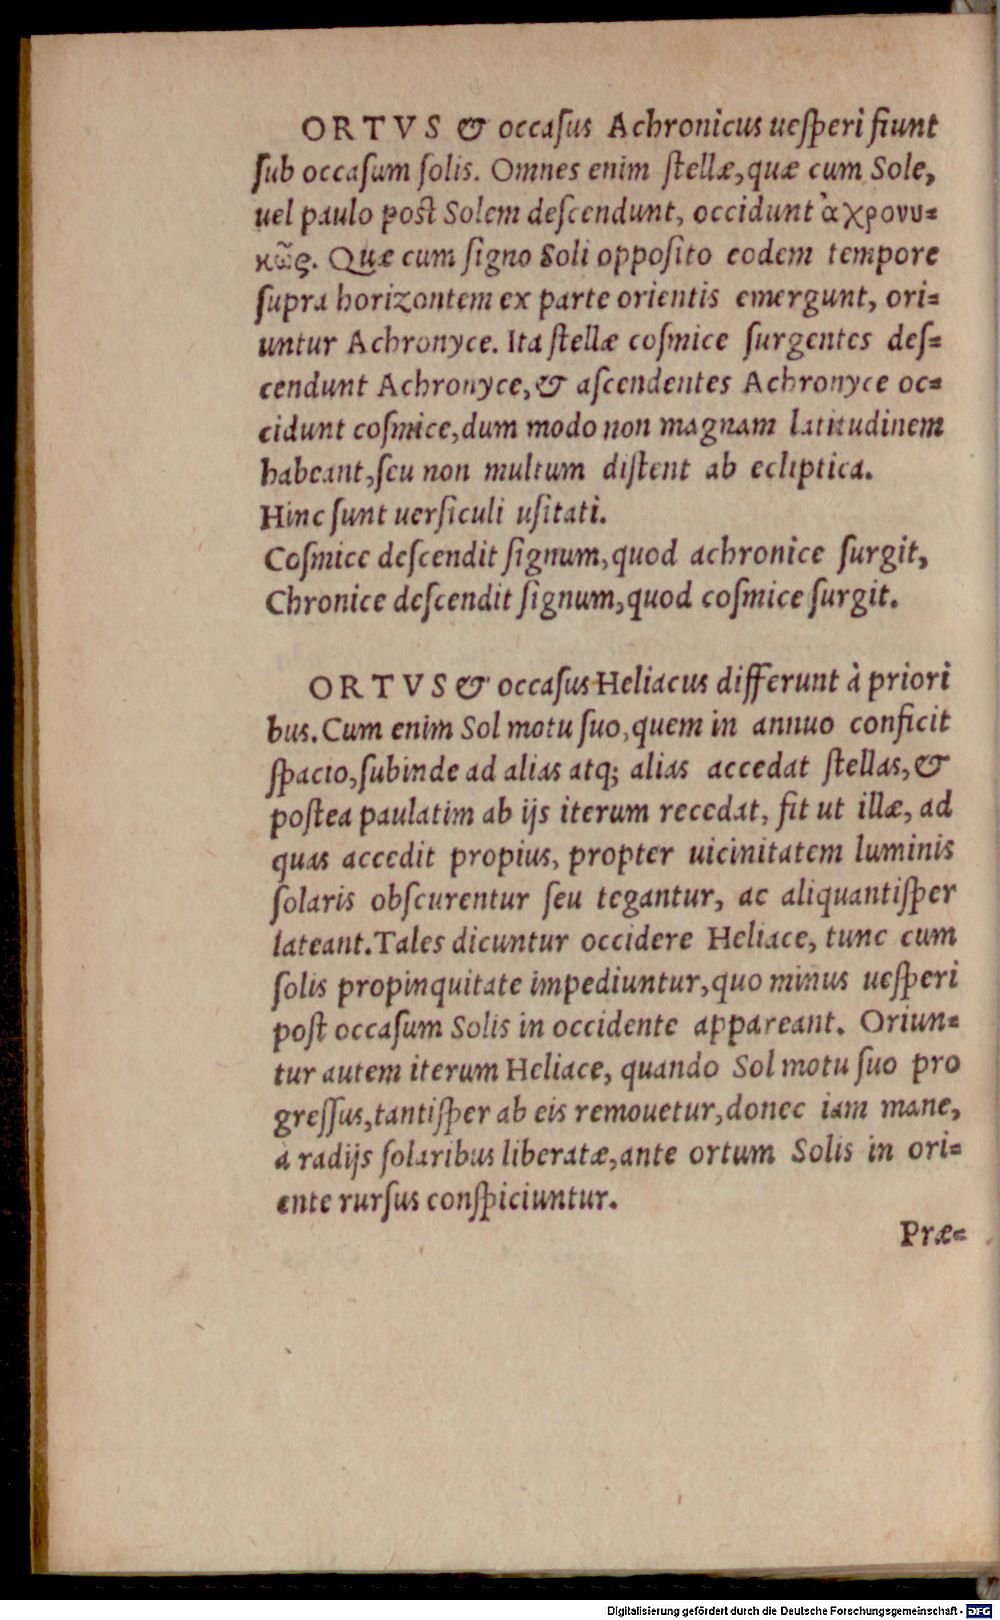 ORTVS & occaſus Achronicus ueſperi fiunt
ſub occaſum ſolis. Omnes enim ſtellæ, quæ cum Sole,
uel paulo poſt Solem deſcendunt, occidunt ἀχρονυ=
κῶς. Quæ cum ſigno Soli oppoſito eodem tempore
ſupra horizontem ex parte orientis emergunt, ori=
untur Achronyce. Ita ſtellæ coſmice ſurgentes deſ=
cendunt Achronyce, & aſcendentes Achronyce oc=
cidunt coſmice, dum modo non magnam latitudinem
habeant, ſeu non multum diſtent ab ecliptica.
Hinc ſunt uerſiculi uſitati.
Coſmice deſcendit ſignum, quod achronice ſurgit,
Chronice deſcendit ſignum, quod coſmice ſurgit.
ORTVS & occaſus Heliacus differunt à priori
bus. Cum enim Sol motu ſuo, quem in annuo conficit
ſpacio, ſubinde ad alias atq; alias accedat ſtellas, &
poſtea paulatim ab ijs iterum recedat, fit ut illæ, ad
quas accedit propius, propter uicinitatem luminis
ſolaris obſcurentur ſeu tegantur, ac aliquantiſper
lateant. Tales dicuntur occidere Heliace, tunc cum
ſolis propinquitate impediuntur, quo minus ueſperi
poſt occaſum Solis in occidente appareant. Oriun=
tur autem iterum Heliace, quando Sol motu ſuo pro
greſſus, tantiſper ab eis remouetur, donec iam mane,
à radijs ſolaribus liberatæ, ante ortum Solis in ori=
ente rurſus conſpiciuntur.
Præ=
Digitalisierung gefördert durch die Deutsche Forschungsgemeinschaft - DFG